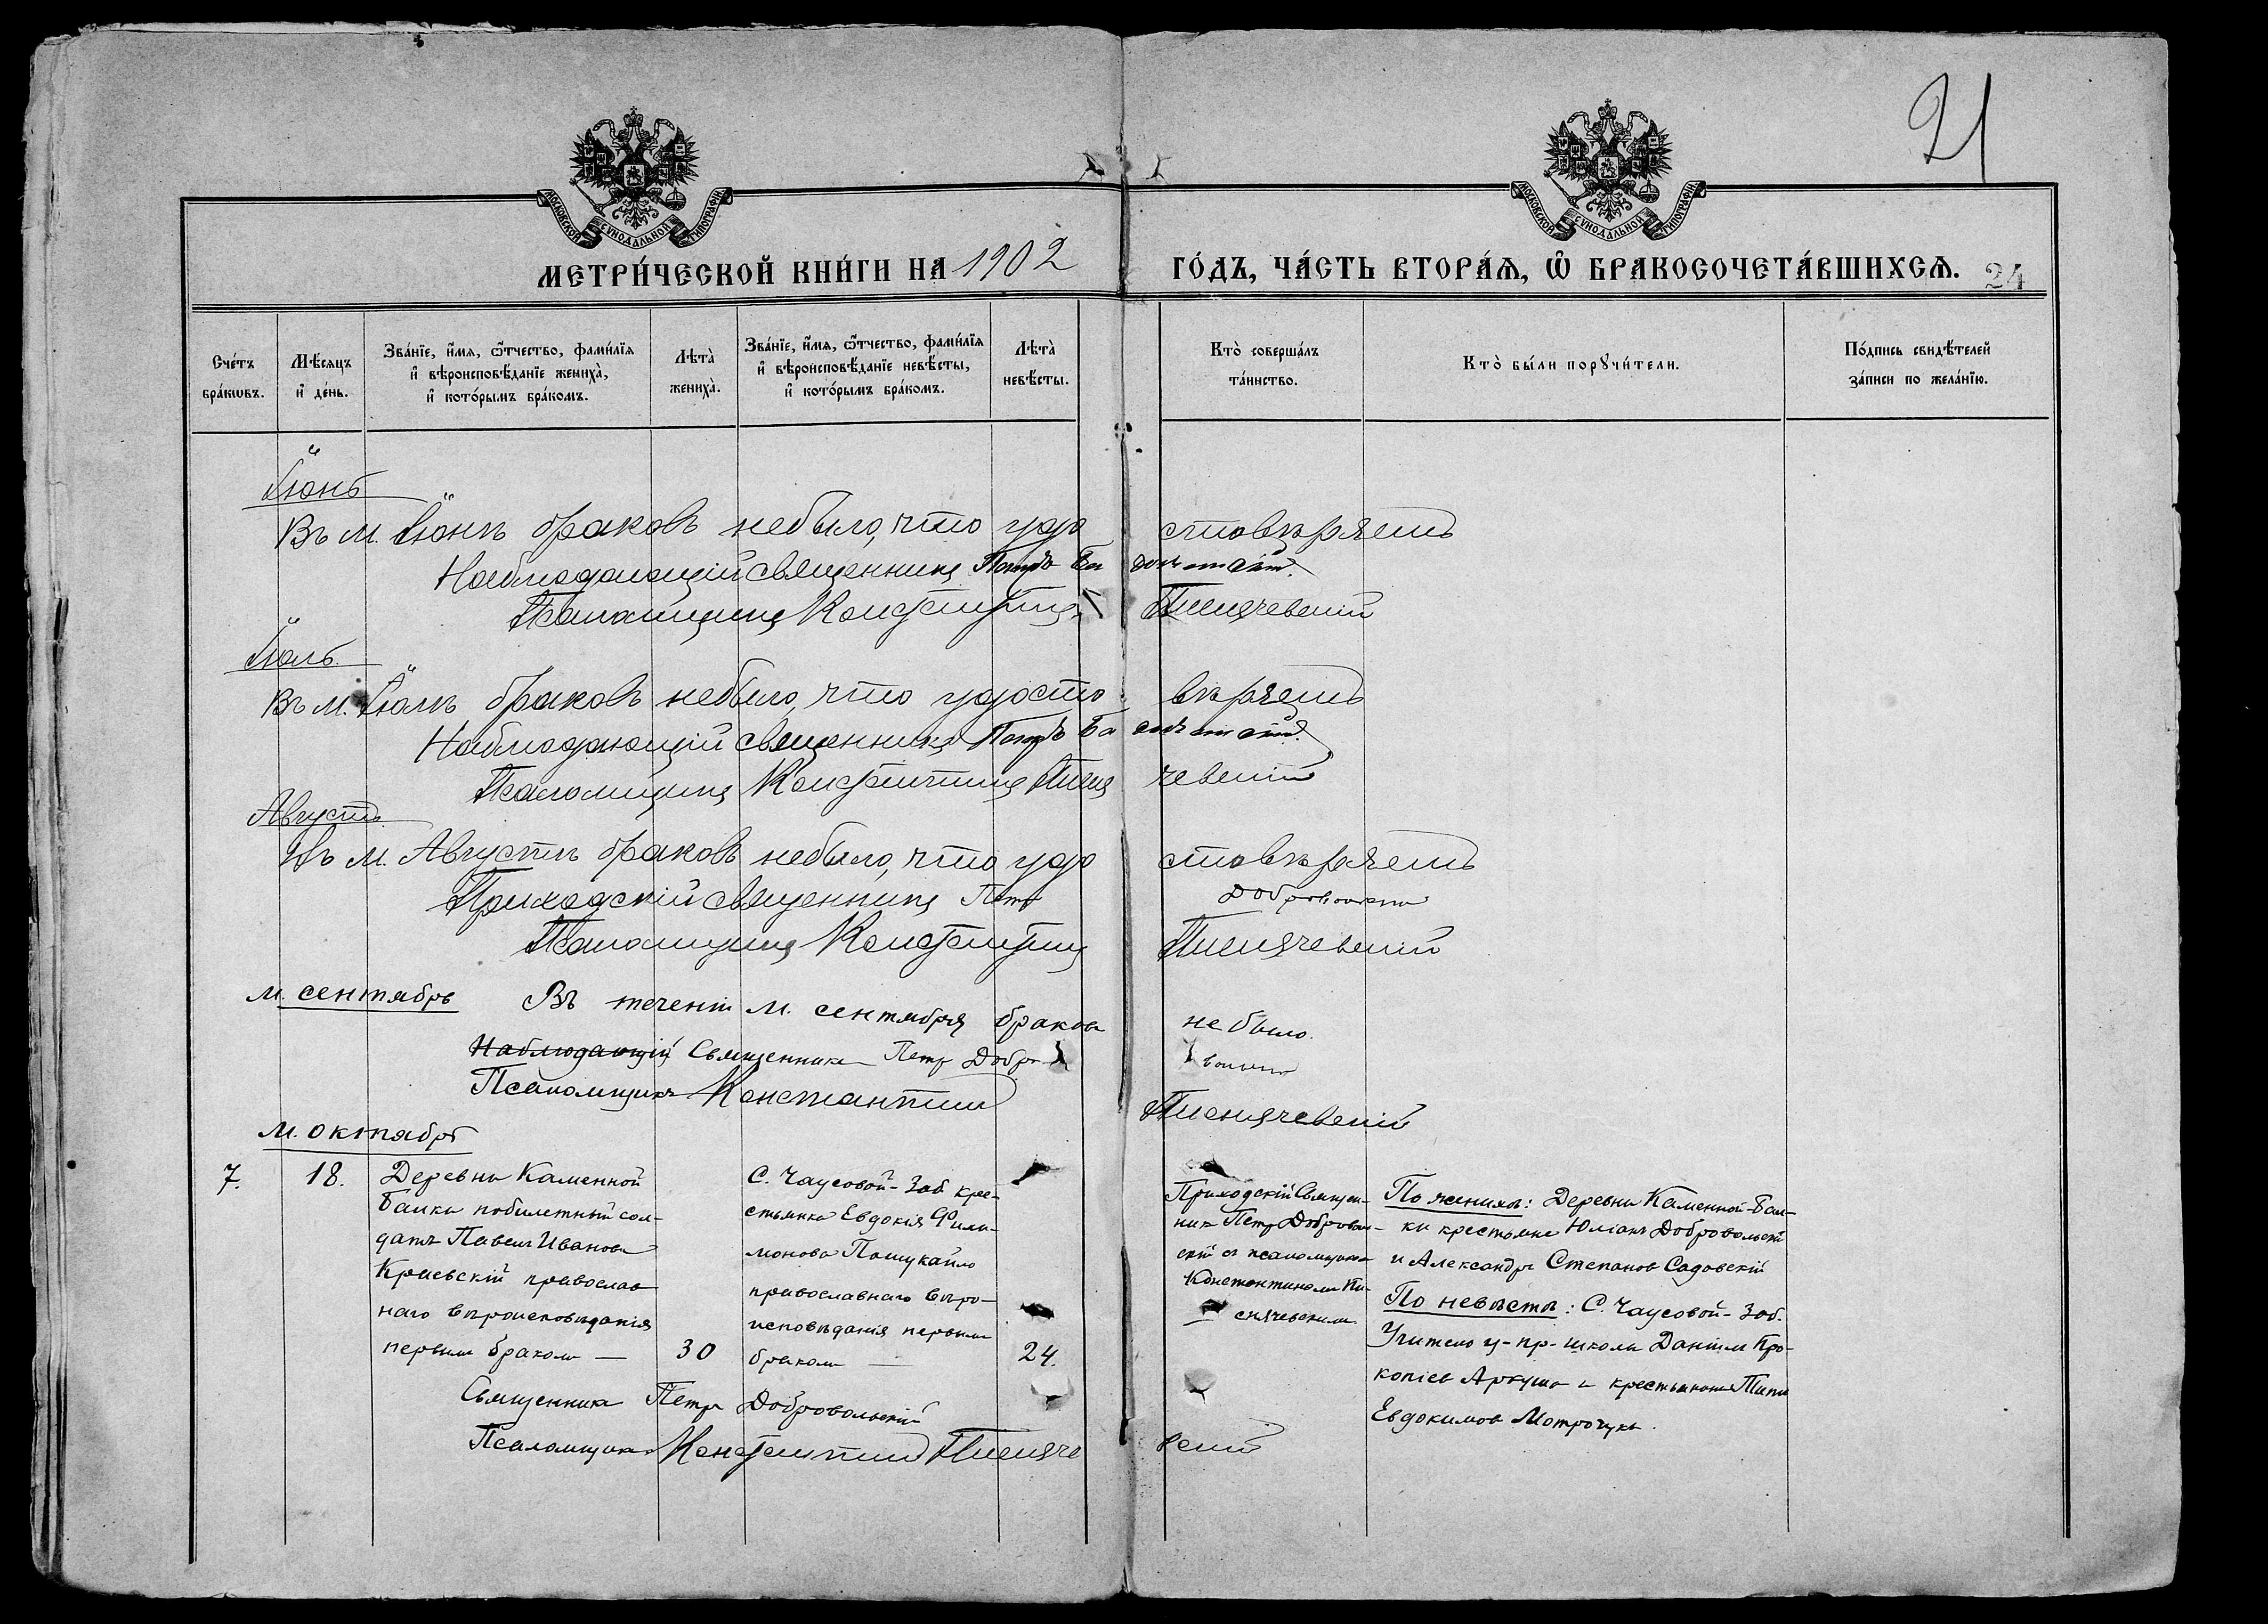 21
МОСКОВСКОЙ СУНОДАЛЬНОЙ ТИПОГРАФІИ
МОСКОВСКОЙ СУНОДАЛЬНОЙ ТИПОГРАФІИ
МЕТРИ́ЧЕСКОЙ КНИ́ГИ НА 1902 ГО́ДЪ, ЧА́СТЬ ВТОРА́Я, Ѽ БРАКОСОЧЕТА́ВШИХСЯ. 24
Сче́тъ бра́кѡвъ.
Мѣ́сяцъ и҆ де́нь.
Зва́нїе, и҆́мя, ѻ҆́тчество, фами́лїя и҆ вѣроисповѣ́данїе жениха̀, и҆ кото́рымъ бра́комъ.
Лѣта̀ жениха̀.
Зва́нїе, и҆́мя, ѻ҆́тчество, фами́лїя и҆ вѣроисповѣ́данїе невѣ́сты, и҆ кото́рымъ бра́комъ.
Лѣта̀ невѣ́сты.
Кто̀ соверша́лъ та́инство.
Кто̀ бы́ли порꙋчи́тели.
По́дпись свидѣ́телей за́писи по жела́нїю.
Іюнь
Въ м. Іюнѣ браковъ небыло, что удо стовѣряетъ
Наблюдающій священникъ
Псаломщикъ Константинъ Писнячевскій
Іюль.
Въ м. Іюлѣ браковъ небыло, что удосто вѣряетъ
Наблюдающій священникъ
Псаломщикъ Константинъ Писня чевскій
Августъ.
Въ м. Августѣ браковъ небыло, что удо стовѣряетъ
Приходскій священникъ Петръ Добровольскій
Псаломщикъ Константинъ Писнячевскій
м. сентябрь Въ теченіи м. сентября браковъ не было.
Наблюдающій Священникъ Петръ Добро вольскій
Псаломщикъ Константинъ Писнячевскій
м. октябрь
7.
18.
Деревни Каменной
Балки побилетный сол-
датъ Павелъ Ивановъ
Краевскій православ
наго вѣроисповѣданія
первымъ бракомъ —
30
С. Чаусовой-Заб. крес-
стьянка Евдокія Фили-
монова Пащукайло
православнаго вѣро-
исповѣданія первымъ
бракомъ —
24.
Приходскій Священ-
никъ Петръ Доброволь-
скій съ псаломщикомъ
Константиномъ Пи-
снячевскимъ
По женихѣ: Деревни Каменной-Бал-
ки крестьяне Юліанъ Добровольскій
и Александръ Степановъ Садовскій
По невѣстѣ: С. Чаусовой-Заб.
Учитель ц-пр-школы Даніилъ Про-
копіевъ и крестьянинъ
Евдокимовъ Мотрочукъ.
Священникъ Петръ Добровольскій
Псаломщикъ Константинъ Писняче вскій